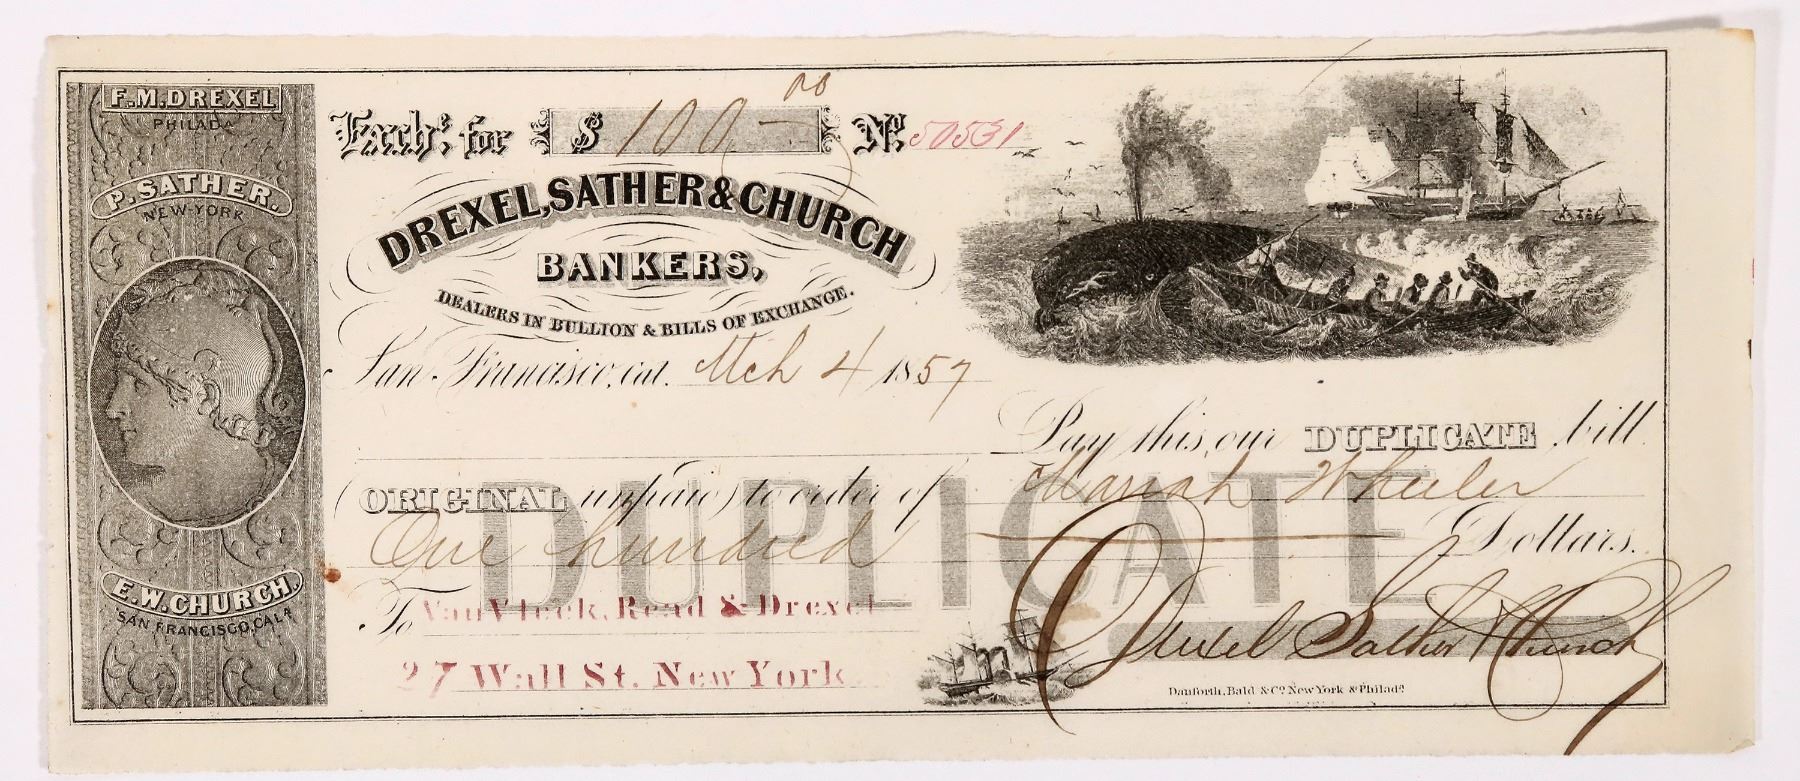 F.M.DREXEL
PHILADA
P. SATHER.
NEW-YORK
E.W.CHURCH.
SAN FRANCISCO, CALA
Exche. for $ 100.00 No. 50531
DREXEL, SATHER & CHURCH
BANKERS,
DEALERS IN BULLION & BILLS OF EXCHANGE.
San Francisco, Cal. Mch 4 1857
Pay this our DUPLICATE bill
(ORIGINAL unpaid) to order of Mariah Wheeler
One hundred Dollars.
DUPLICATE
To Van Vleck, Read & Drexel
27 Wall St. New York
Drexel Sather & Church
Danforth, Bald & Co. New York & Philada.